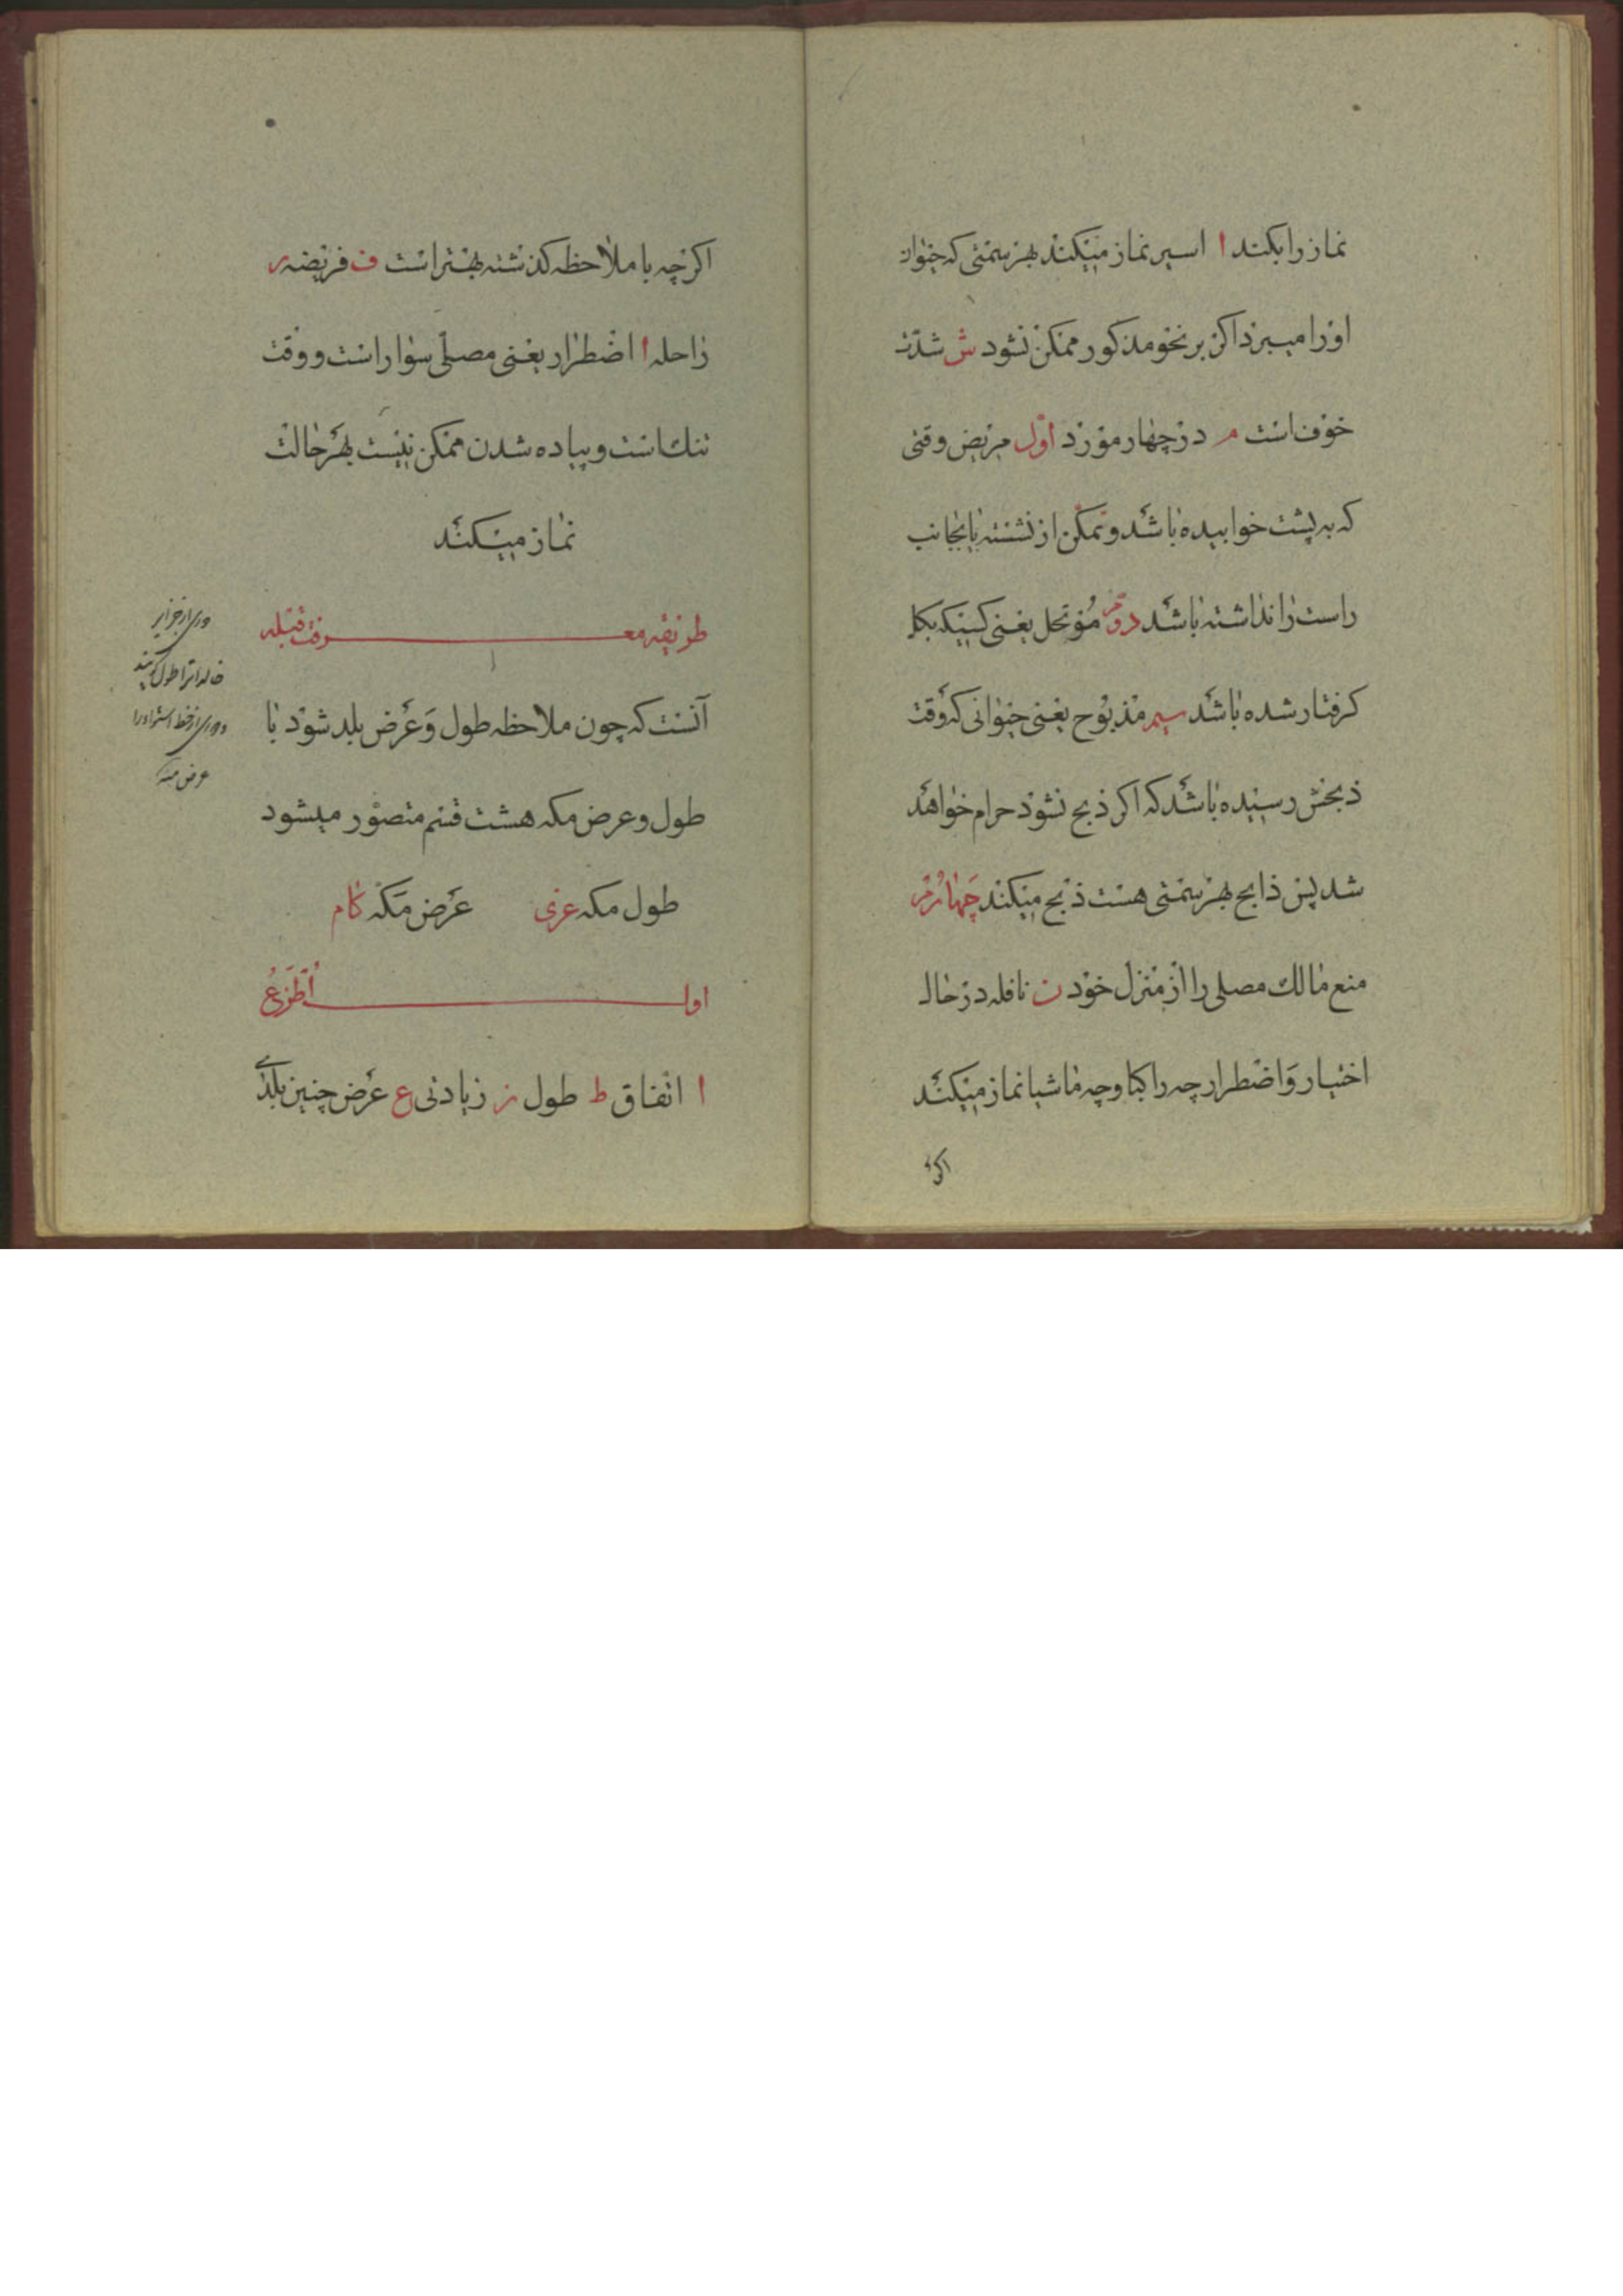 نماز را بکند ا اسیر نماز میکند بهر سمتی که حیوان
او را میبرد اکر بر نحو مذکور ممکن نشود ش شدّت
خوف است م در چهار مورد اوّل مریض وقتی
که به پشت خوابیده باشد و تمکّن از نشستن یا بجانب
راست را نداشته باشد دوّم مُوتحل یعنی کسیکه بکل
کرفتار شده باشد سیم مذبوح یعنی حیوانی که وقت
ذبحش رسیده باشد که اکر ذبح نشود حرام خواهد
شد پس ذابح بهر سمتی هست ذبح میکند چهارم
منع مالك مصلی را از منزل خود ن نافله در حال
اختیار و اضطرار چه راکبا و چه ماشیا نماز میکند
اکر
اکرچه با ملاحظه کذشته بهتر است ف فریضه ر
راحله ا اضطرار یعنی مصلّی سوار است و وقت
تنك است و پیاده شدن ممکن نیست بهر حالت
نماز میکند
طریقه معرفت قبله
آنست که چون ملاحظه طول و عَرض بلد شود با
طول و عرض مکه هشت قسم متصوّر میشود
طول مکه عزی عَرض مَکّه کام
اول اُطَزعُ
ا اتّفاق ط طول ز زیادتی ع عَرض چنین بلدی
دوری از جزایر
خالدات را طول کویند
و دوری از خط استوا را
عرض